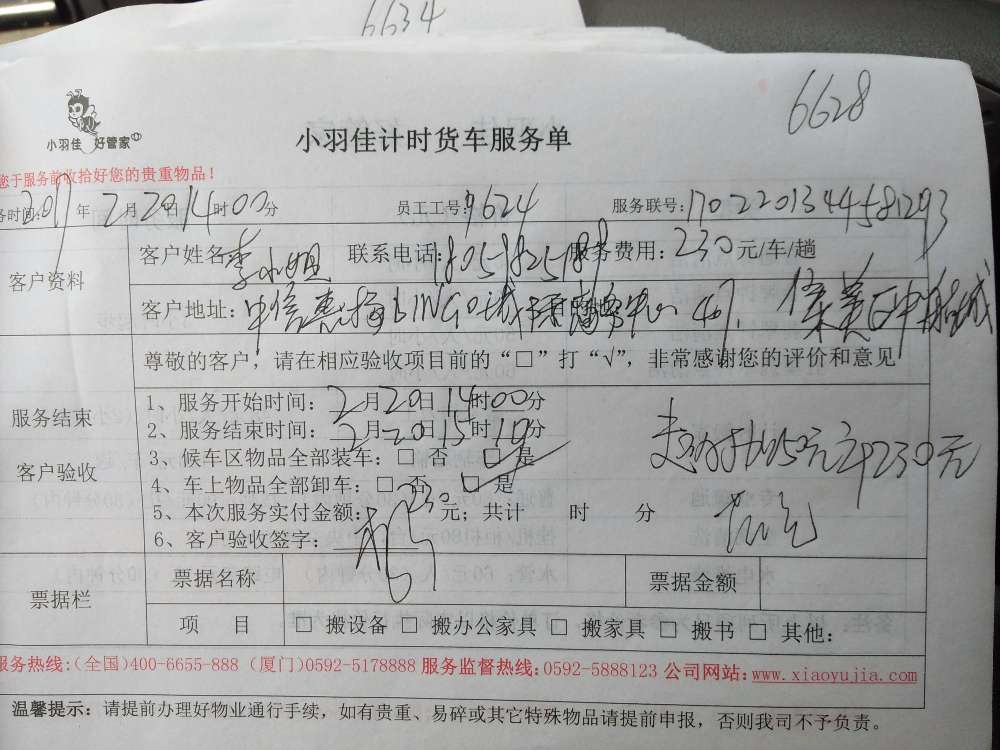 6634
6628
小羽佳 好管家
小羽佳计时货车服务单
您于服务前收拾好您的贵重物品！
务时间: 2017年2月20日14时00分 员工工号: 9624 服务联号: 1702201344581293
客户资料
客户姓名 李小姐 联系电话: 服务费用: 230元/车/趟
客户地址: 中信惠扬LINGO城
尊敬的客户，请在相应验收项目前的“□”打“√”，非常感谢您的评价和意见
服务结束
客户验收
1、服务开始时间: 2月20日14时00分
2、服务结束时间: 2月20日15时19分
3、候车区物品全部装车: □ 否 □ 是
4、车上物品全部卸车: □ 否 □ 是
5、本次服务实付金额: 230元; 共计 时 分
6、客户验收签字:
230元
票据栏
票据名称 票据金额
项 目 □ 搬设备 □ 搬办公家具 □ 搬家具 □ 搬书 □ 其他:
服务热线:(全国)400-6655-888 (厦门)0592-5178888 服务监督热线:0592-5888123 公司网站:www.xiaoyujia.com
温馨提示: 请提前办理好物业通行手续，如有贵重、易碎或其它特殊物品请提前申报，否则我司不予负责。